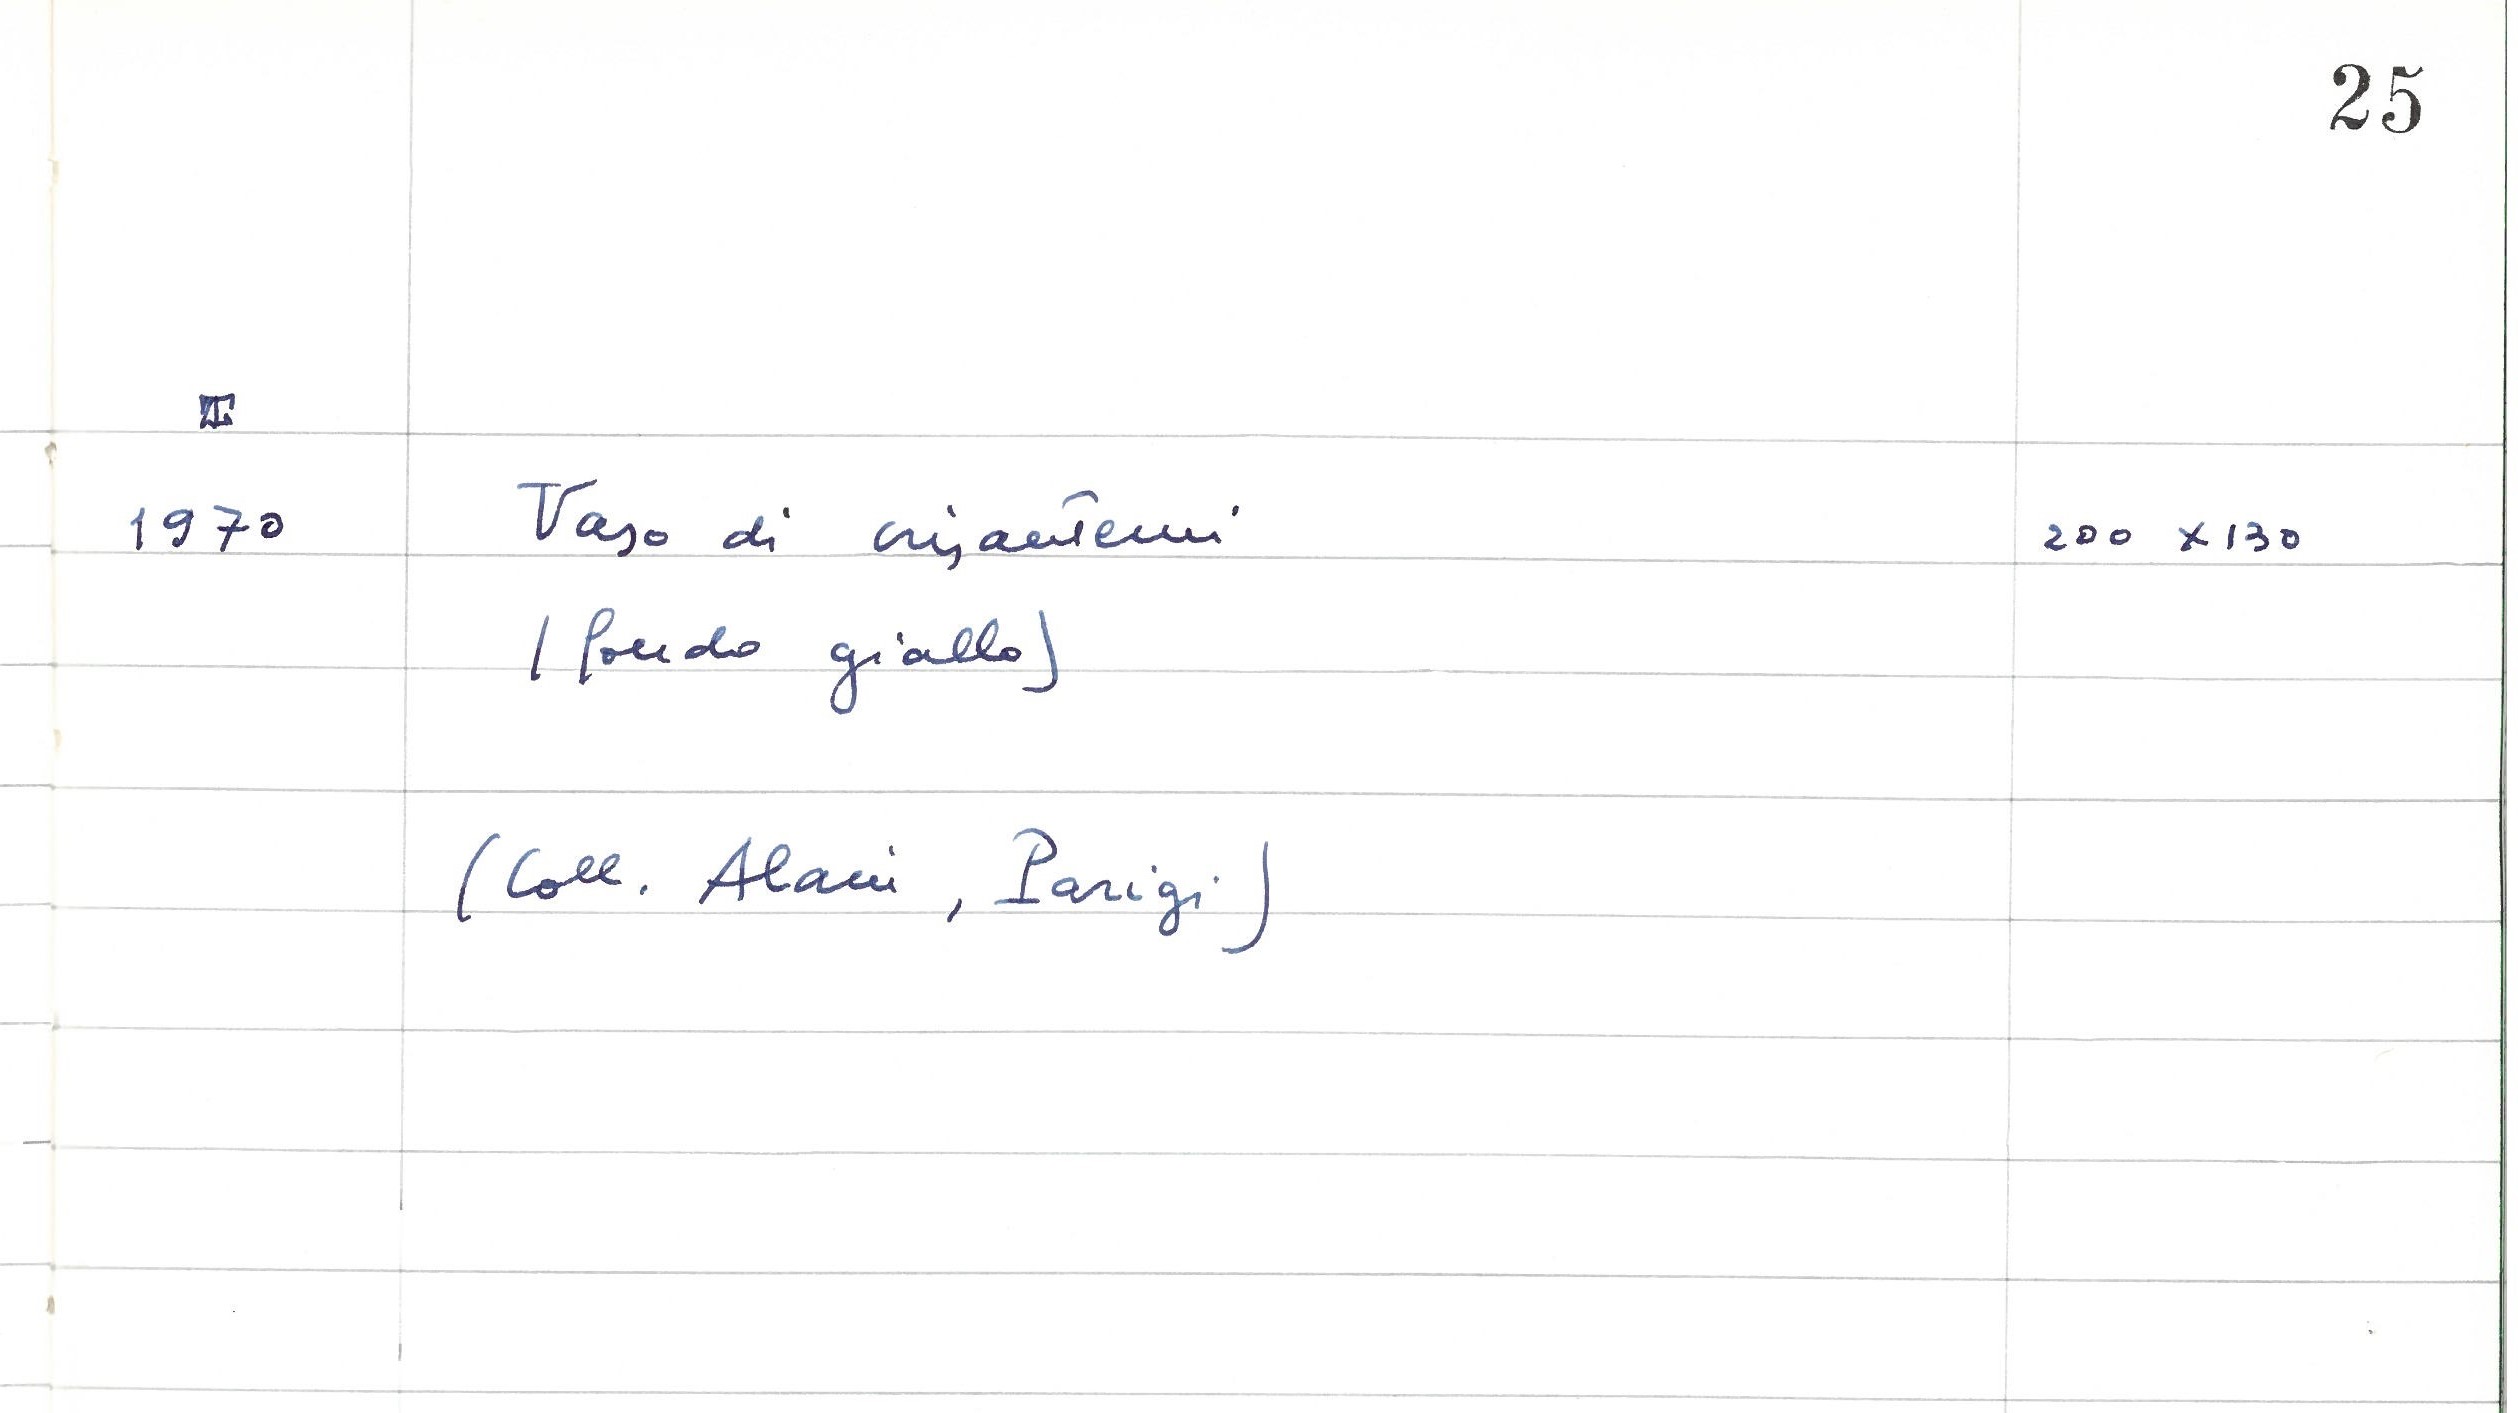 25
1970 Vaso di crisantemi 200 x 130
(fondo giallo)
(Coll. Alani, Parigi)